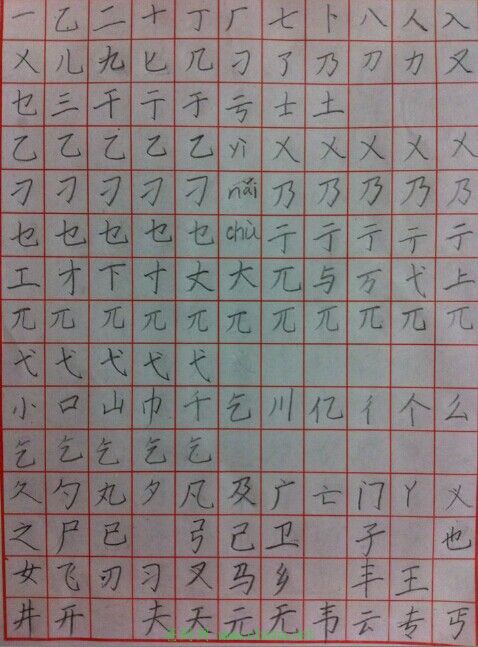 一 乙 二 十 丁 厂 七 卜 八 人 入
乂 儿 九 匕 几 刁 了 乃 刀 力 又
乜 三 干 亍 于 亏 士 土
乙 乙 乙 乙 乙 yì 乂 乂 乂 乂 乂
刁 刁 刁 刁 刁 nǎi 乃 乃 乃 乃 乃
乜 乜 乜 乜 乜 chù 亍 亍 亍 亍 亍
工 才 下 寸 丈 大 兀 与 万 弋 上
兀 兀 兀 兀 兀 兀 兀 兀 兀 兀 兀
弋 弋 弋 弋 弋
小 口 山 巾 千 乞 川 亿 彳 个 么
乞 乞 乞 乞 乞
久 勺 丸 夕 凡 及 广 亡 门 丫 义
之 尸 巳 弓 己 卫 子 也
女 飞 刃 习 叉 马 乡 丰 王
井 开 夫 天 元 无 韦 云 专 丐